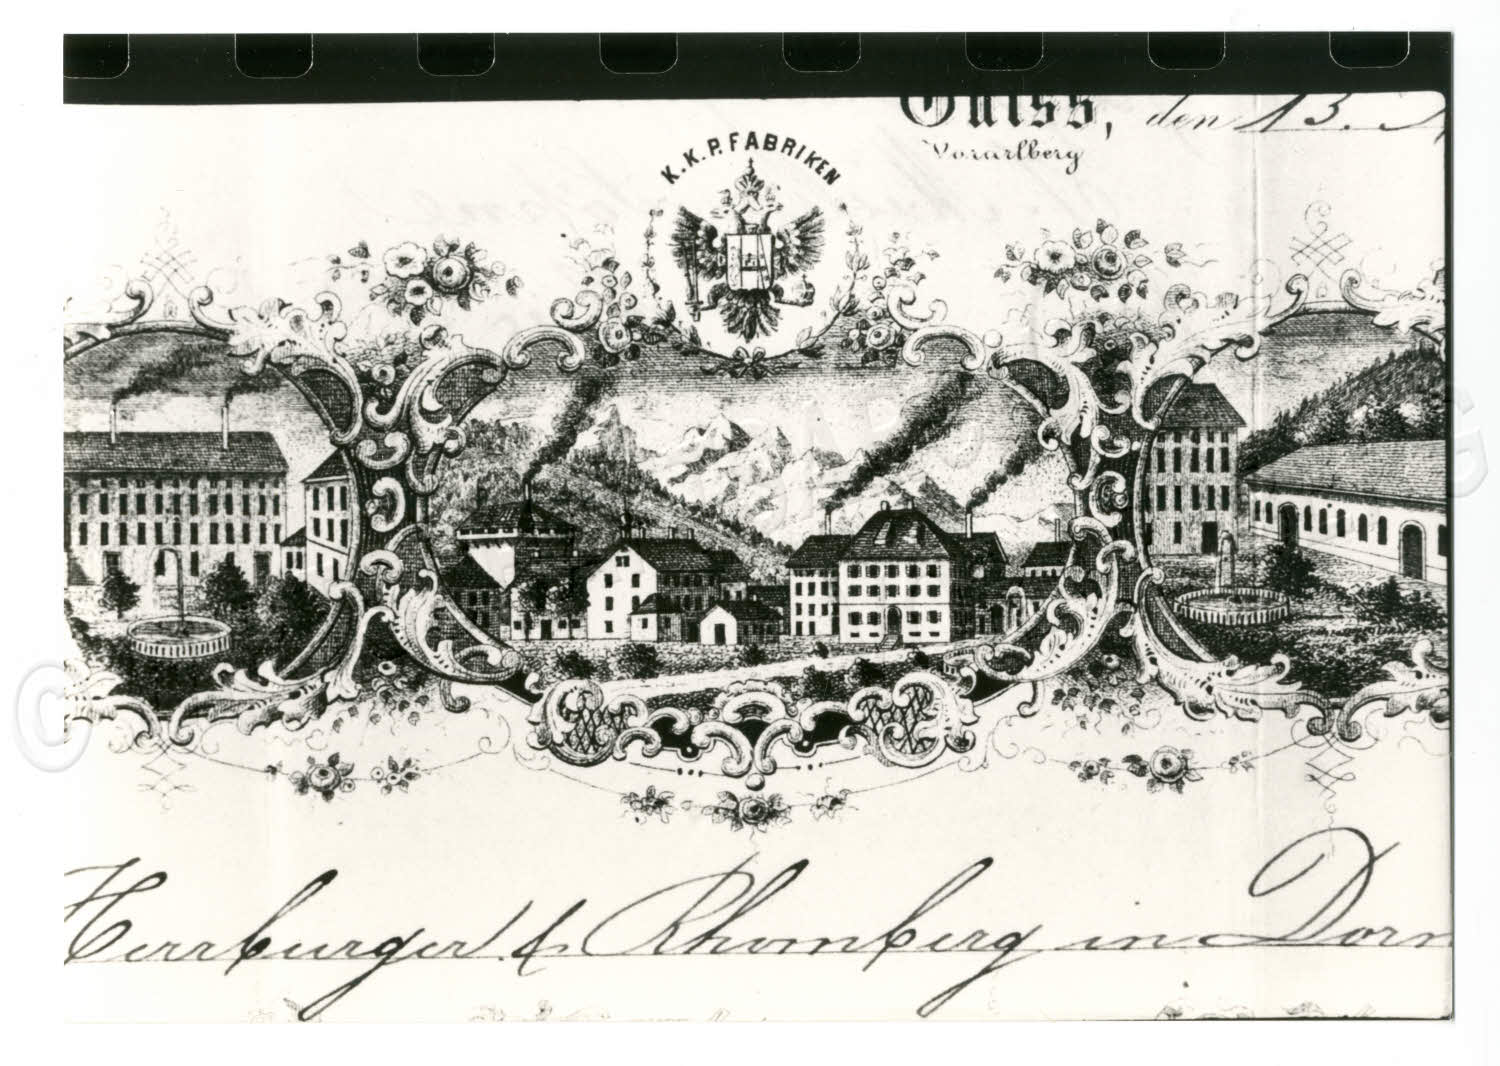 den 13.
Vorarlberg
K. K. P. FABRIKEN
Herrburger & Rhomberg in Dorn